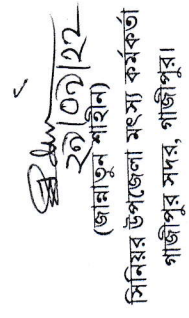 ২৭/০৭/২২
(জান্নাতুন শাহীন)
সিনিয়র উপজেলা মৎস্য কর্মকর্তা
গাজীপুর সদর, গাজীপুর।